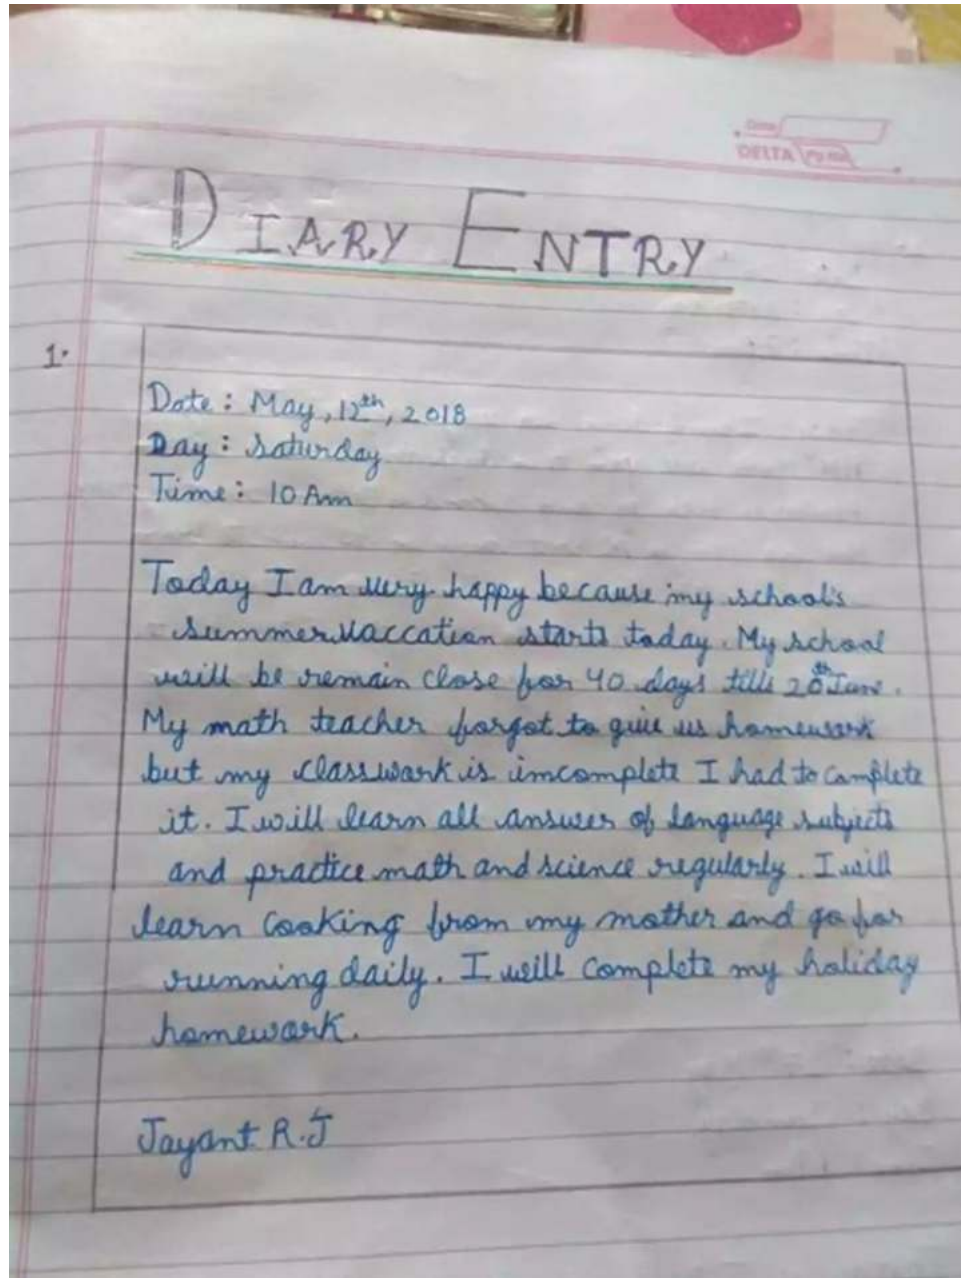 Date
DELTA Pg No.
DIARY ENTRY
1.
Date : May, 12th, 2018
Day : Saturday
Time : 10 Am
Today I am very happy because my school's
summer vaccation starts today. My school
will be remain close for 40 days till 20th June.
My math teacher forgot to give us homework
but my classwork is imcomplete I had to complete
it. I will learn all answer of language subjects
and practice math and science regularly. I will
learn cooking from my mother and go for
running daily. I will complete my holiday
homework.
Jayant R.J